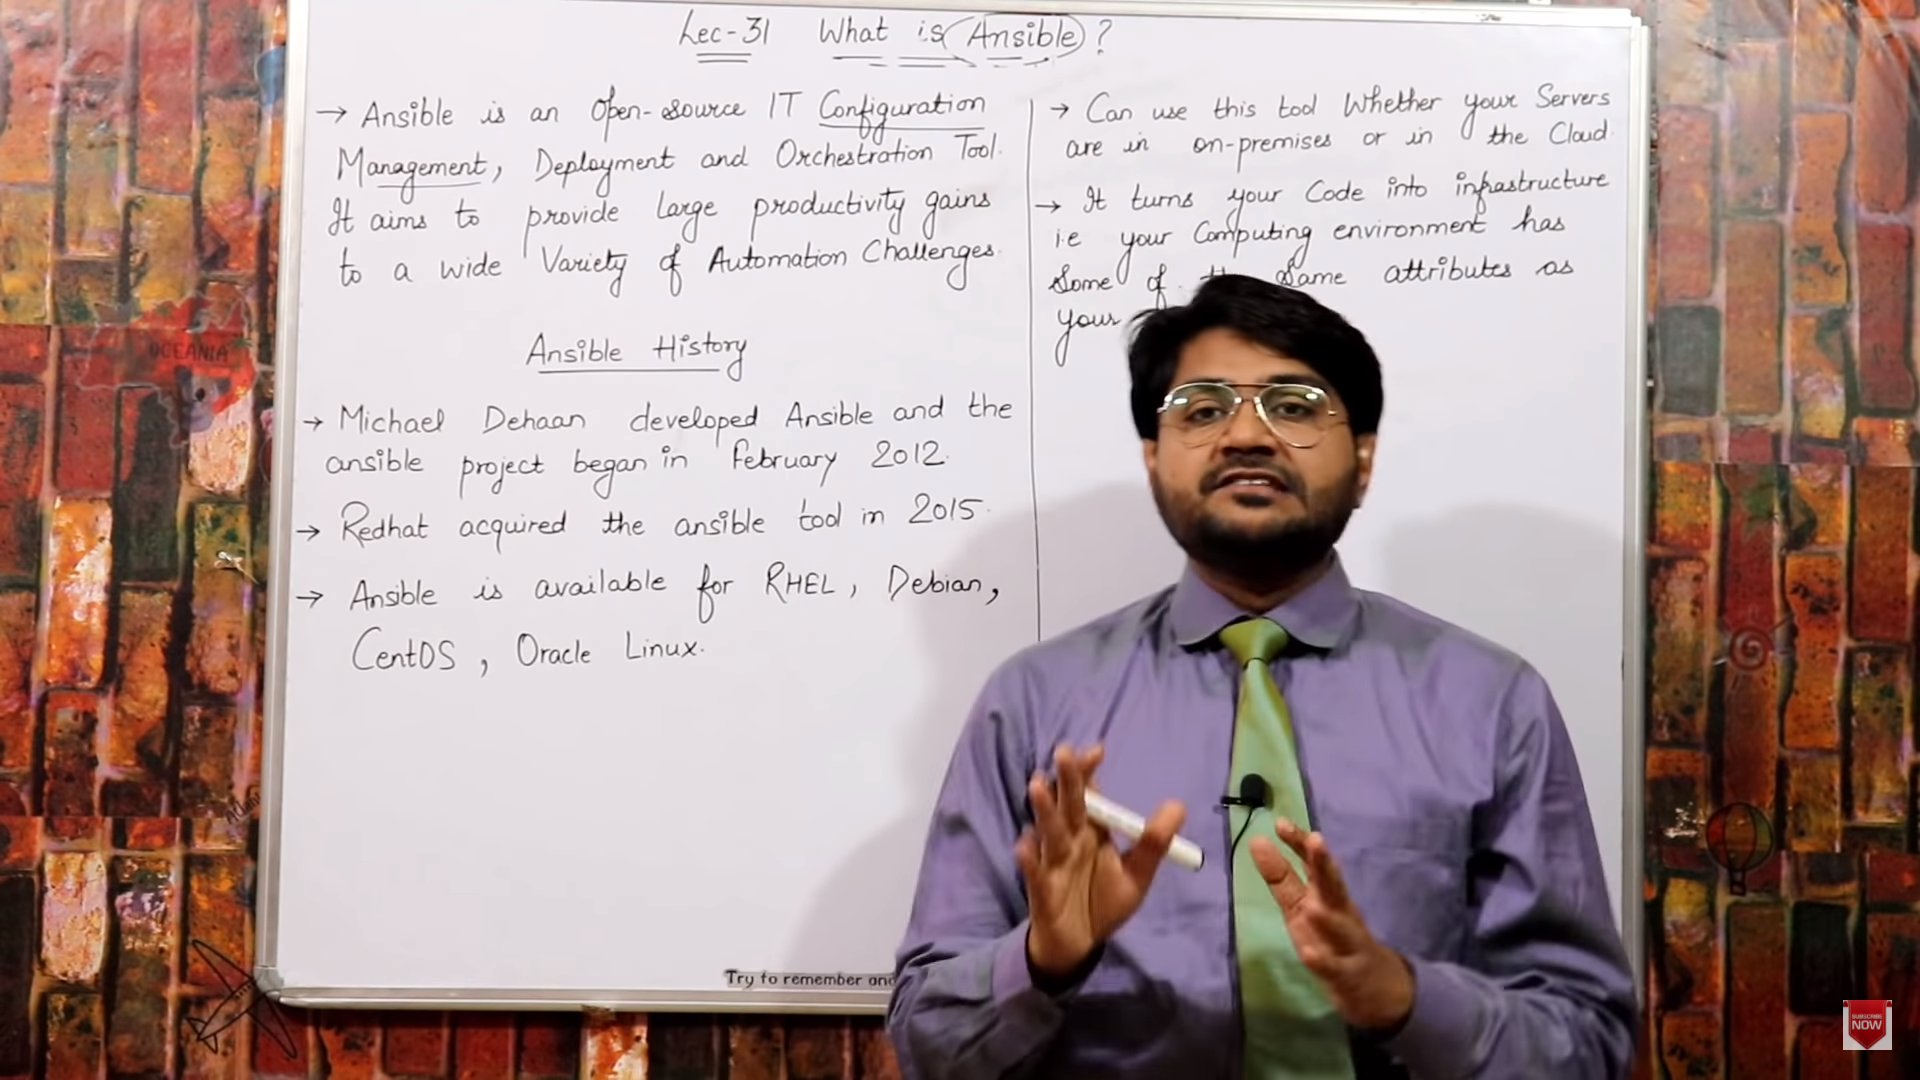 Lec-31 What is Ansible ?
→ Ansible is an Open-source IT Configuration
Management, Deployment and Orchestration Tool.
It aims to provide large productivity gains
to a wide Variety of Automation Challenges.
Ansible History
→ Michael Dehaan developed Ansible and the
ansible project began in February 2012.
→ Redhat acquired the ansible tool in 2015.
→ Ansible is available for RHEL, Debian,
CentOS, Oracle Linux.
→ Can use this tool Whether your Servers
are in on-premises or in the Cloud.
→ It turns your Code into infrastructure
i.e your Computing environment has
Some of Same attributes as
your
Try to remember and
OCEANIA
SUBSCRIBE
NOW